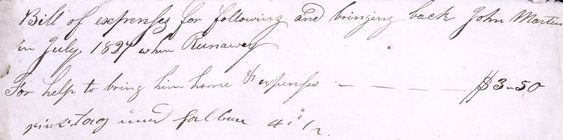 Bill of expenses for following and bringing back John Martin
in July 1827 when Runaway
For help to bring him home & expenses — — — — $3-50